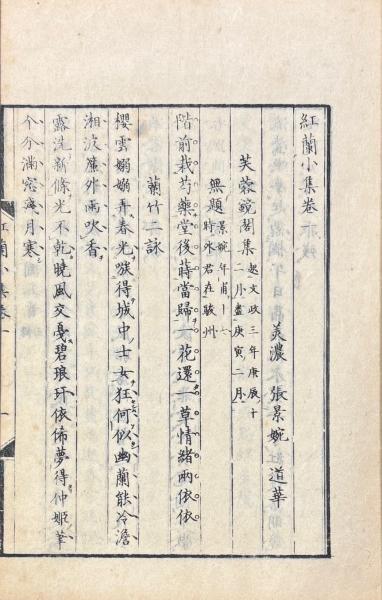 紅蘭小集卷
美濃 張景婉 道華
芙蓉鏡閣集 起文政三年庚辰十二月盡庚寅二月
無題 景婉年甫十六時外君在駿州
階前栽芍藥堂後蒔當歸一花還一草情緒兩依依
蘭竹二詠
櫻雲嫋嫋弄春光簇得城中士女狂何似幽蘭能冷澹
湘波簾外雨吹香
露洗新條光不乾曉風交戛碧琅玕依俙夢得仲姬筆
个分滿窓月寒
紅蘭小集卷一
一